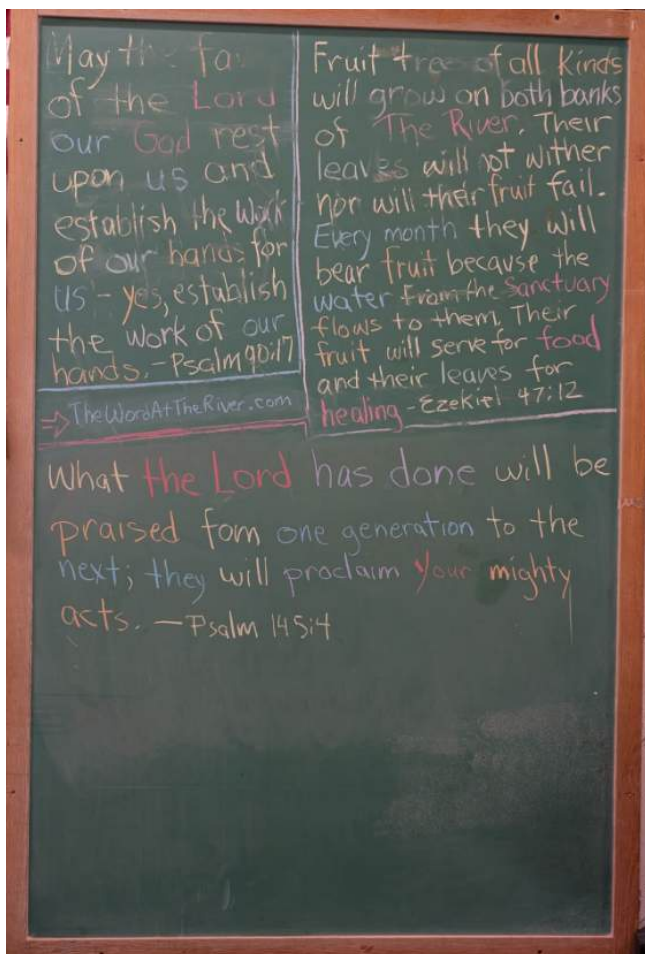 May the fa
of the Lord
our God rest
upon us and
establish the work
of our hands for
us - yes, establish
the work of our
hands. - Psalm 90:17
⇒ TheWordAtTheRiver.com
Fruit trees of all kinds
will grow on both banks
of The River. Their
leaves will not wither
nor will their fruit fail.
Every month they will
bear fruit because the
water from the sanctuary
flows to them. Their
fruit will serve for food
and their leaves for
healing - Ezekiel 47:12
What the Lord has done will be
praised fom one generation to the
next; they will proclaim Your mighty
acts. - Psalm 145:4